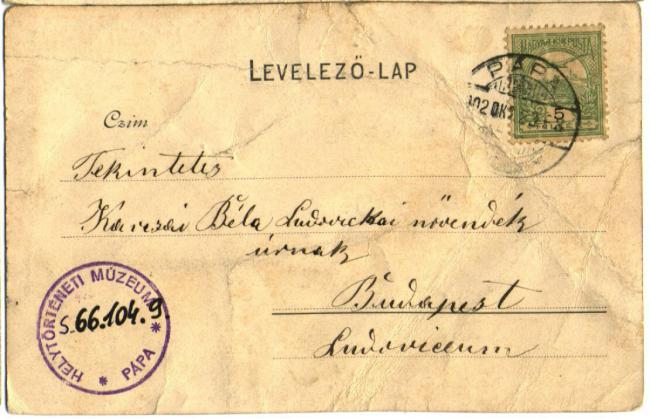 LEVELEZŐ-LAP
MAGYAR KIR. POSTA
PÁPA
902 OKT.
5
Czim
Tekintetes
Karcsái Béla Ludovickai növendék
úrnak
Budapest
Ludoviceum
HELYTÖRTÉNETI MÚZEUM * PÁPA *
S. 66.104.9